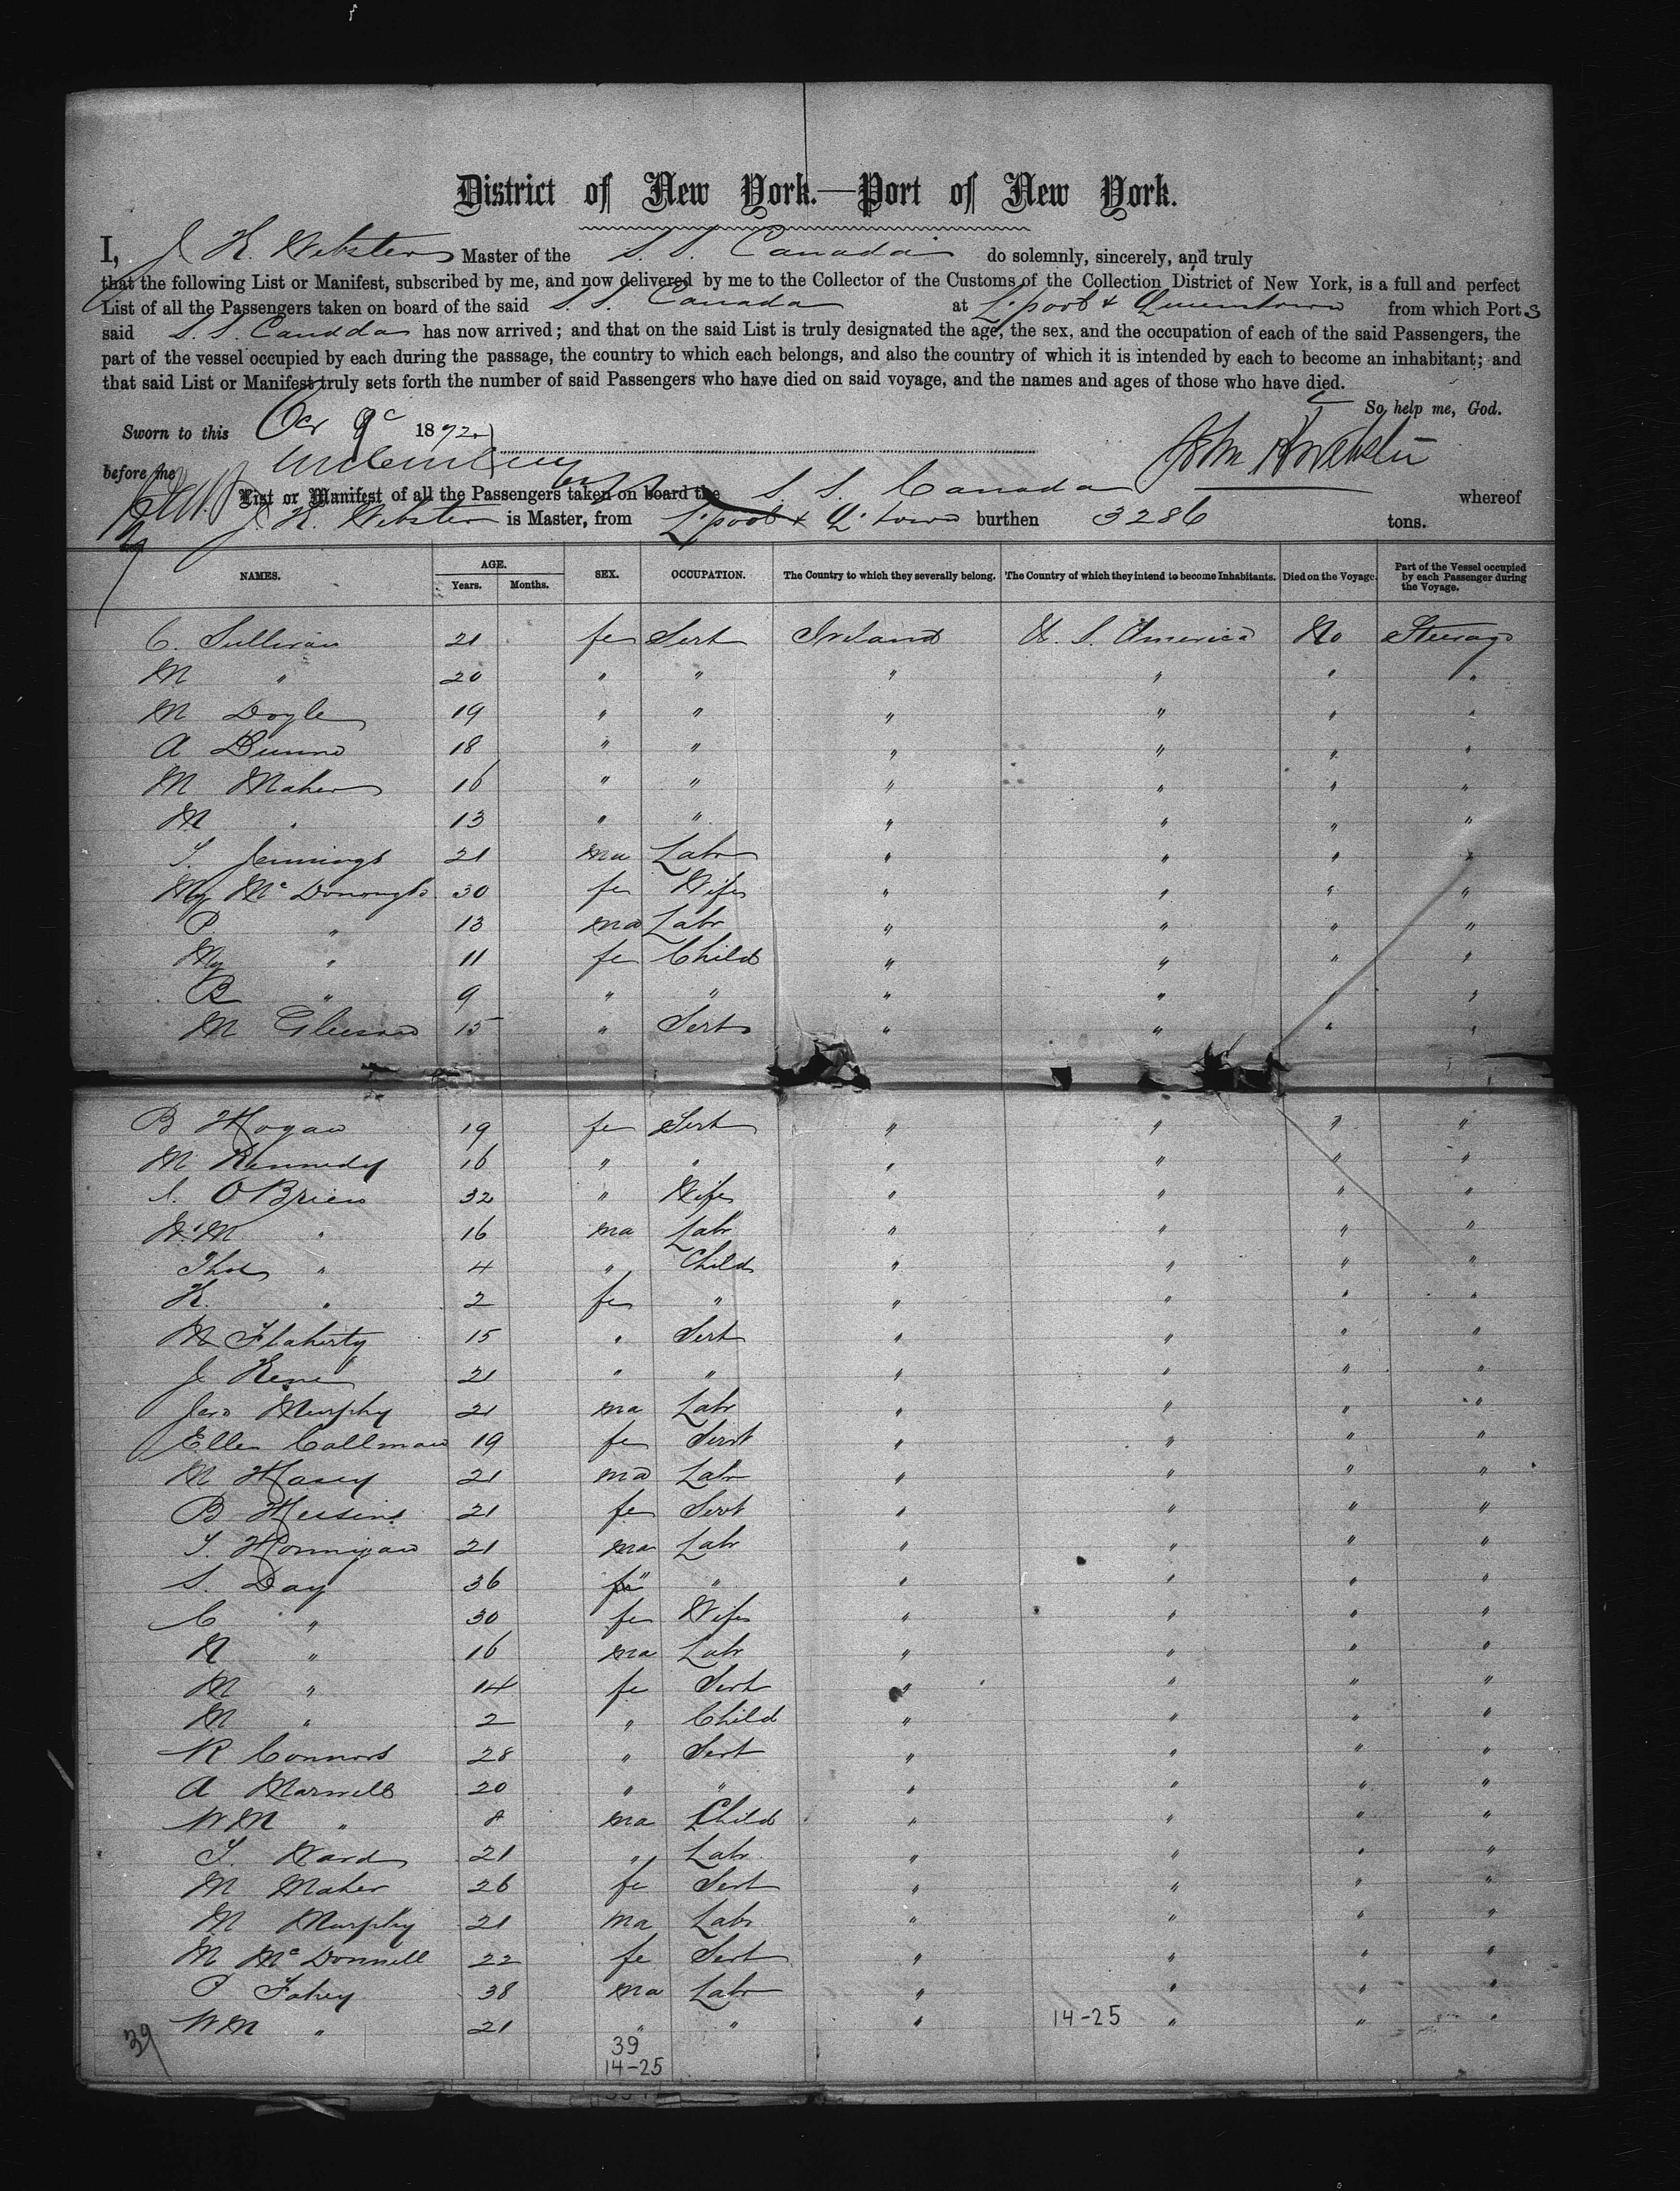 District of New York.—Port of New York.
I, J. H. Webster Master of the S. S. Canada do solemnly, sincerely, and truly
that the following List or Manifest, subscribed by me, and now delivered by me to the Collector of the Customs of the Collection District of New York, is a full and perfect
List of all the Passengers taken on board of the said S. S. Canada at L'pool & Queenstown from which Ports
said S. S. Canada has now arrived; and that on the said List is truly designated the age, the sex, and the occupation of each of the said Passengers, the
part of the vessel occupied by each during the passage, the country to which each belongs, and also the country of which it is intended by each to become an inhabitant; and
that said List or Manifest truly sets forth the number of said Passengers who have died on said voyage, and the names and ages of those who have died.
So help me, God.
Sworn to this 9 1872
before me
List or Manifest of all the Passengers taken on board the S. S. Canada whereof
J. H. Webster is Master, from L'pool & Q'town burthen 3286 tons.
NAMES. AGE. Years. Months. SEX. OCCUPATION. The Country to which they severally belong. The Country of which they intend to become Inhabitants. Died on the Voyage. Part of the Vessel occupied by each Passenger during the Voyage.
C. Sullivan 21 fe Sert Ireland U. S. America No Steerage
M " 20 " " " " " "
M Doyle 19 " " " " " "
A Dunne 18 " " " " " "
M Maher 16 " " " " " "
M " 13 " " " " " "
T. Jennings 21 ma Labr " " " "
My McDonough 30 fe Wife " " " "
P. " 13 ma Labr " " " "
My " 11 fe Child " " " "
B " 9 " " " " " "
M Gleeson 15 " Sert " " " "
B Hogan 19 fe Sert " " " "
M Kennedy 16 " " " " " "
OBrien 32 " Wife " " " "
Wm " 16 ma Labr " " " "
Thos " 4 " Child " " " "
K. " 2 fe " " " " "
M Flaherty 15 " Sert " " " "
J Kene 21 " " " " " "
Jero Murphy 21 ma Labr " " " "
Ellen Collman 19 fe Servt " " " "
M Hasey 21 ma Labr " " " "
B Hessins 21 fe Servt " " " "
T. Hannigan 21 ma Labr " " " "
S. Day 36 " " " " " "
C " 30 fe Wife " " " "
N " 16 ma Labr " " " "
M " 14 fe Sert " " " "
M " 2 " Child " " " "
R Connors 28 " Sert " " " "
A Marnell 20 " " " " " "
WM " 8 ma Child " " " "
T. Ward 21 " Labr " " " "
M Maher 26 fe Sert " " " "
M Murphy 21 ma Labr " " " "
M McDonnell 22 fe Sert " " " "
P Fahey 38 ma Labr " " " "
WM " 21 " " " 14-25 " " "
39 39
14-25